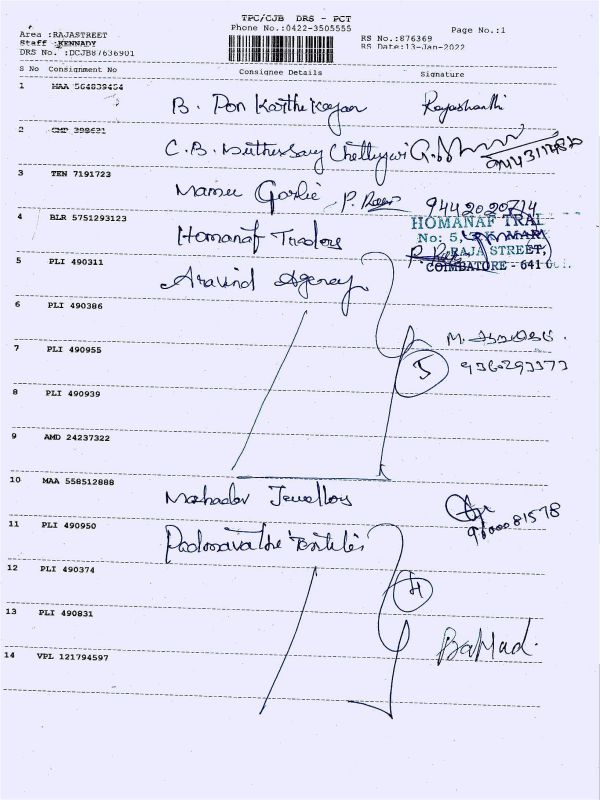 TPC/CJB DRS - PCT
Phone No.:0422-3505555
Page No.:1
Area :RAJASTREET
Staff :KENNADY
DRS No. :DCJB87636901
RS No.:876369
RS Date:13-Jan-2022
S No Consignment No Consignee Details Signature
1 MAA 564839454 B. Pon Karthikeyan
2 398621 C.B.
3 TEN 7191723 9442020714
4 BLR 5751293123 Homanaf Traders
HOMANAF TRAD
No: 5,
RAJA STREET,
COIMBATORE - 641
5 PLI 490311 Aravind Agency
6 PLI 490386
7 PLI 490955 M.
5 9360293373
8 PLI 490939
9 AMD 24237322
10 MAA 558512888 Mahadev Jewellers
11 PLI 490950 9600081578
12 PLI 490374 4
13 PLI 490831
14 VPL 121794597